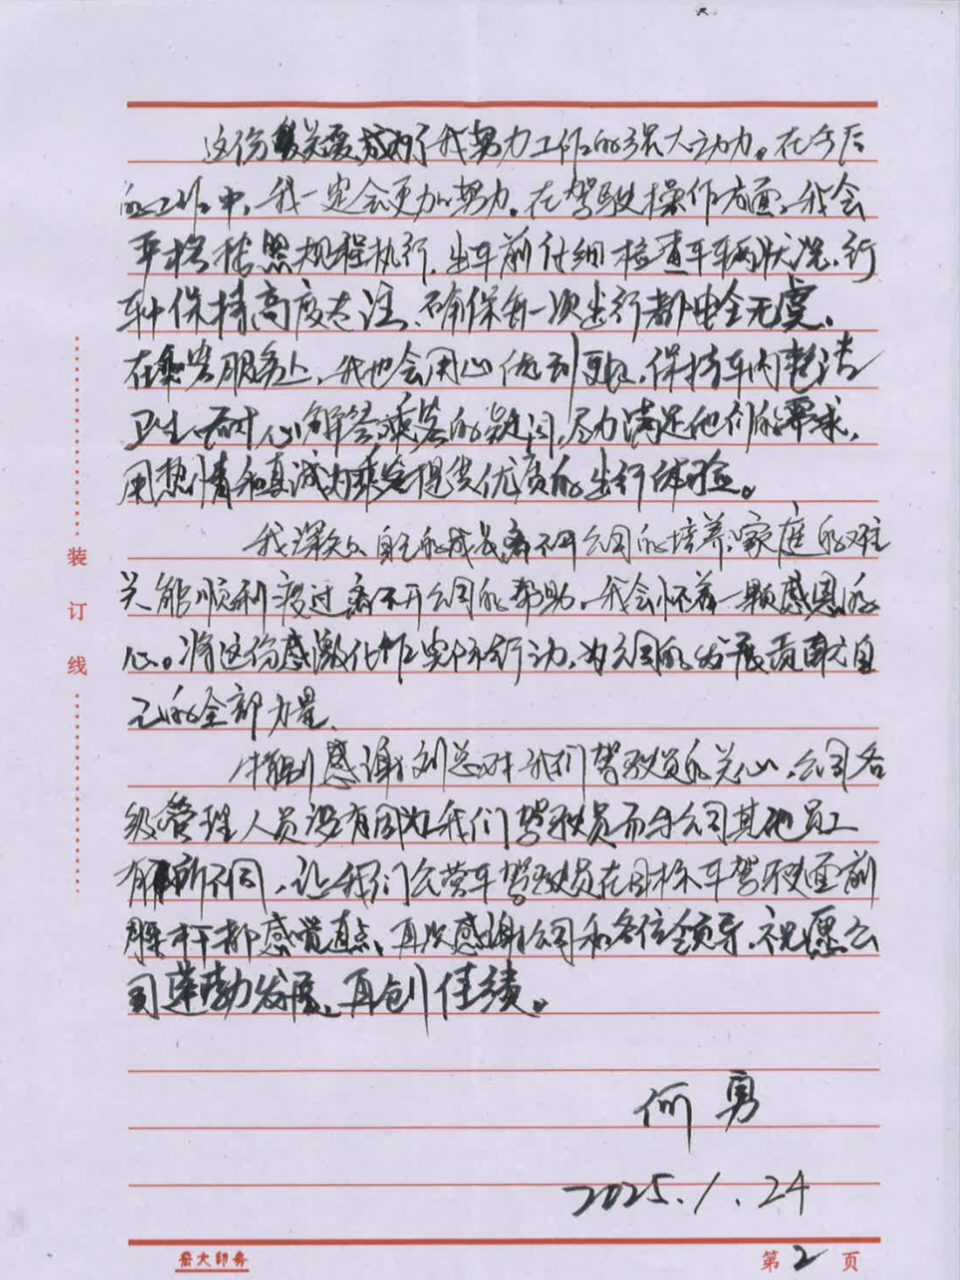 这份关爱成为了我努力工作的强大动力。在今后
的工作中,我一定会更加努力。在驾驶操作方面,我会
严格按照规程执行,出车前仔细检查车辆状况,行
车中保持高度专注,确保每一次出行都安全无虞。
在乘客服务上,我也会用心做到更好,保持车内整洁
卫生,耐心解答乘客的疑问,尽力满足他们的需求,
用热情和真诚为乘客提供优质的出行体验。
我深知自己的成长离不开公司的培养,家庭的难
关能顺利渡过离不开公司的帮助。我会怀着一颗感恩的
心。将这份感激化作实际行动,为公司的发展贡献自
己的全部力量。
特别感谢刘总对我们驾驶员的关心,公司各
级管理人员没有因为我们驾驶员而与公司其他员工
有所不同,让我们公营车驾驶员在目标车驾驶面前
腰杆都感觉直点,再次感谢公司和各位领导,祝愿公
司蓬勃发展,再创佳绩。
何勇
2025.1.24
装订线
大印务
第2页